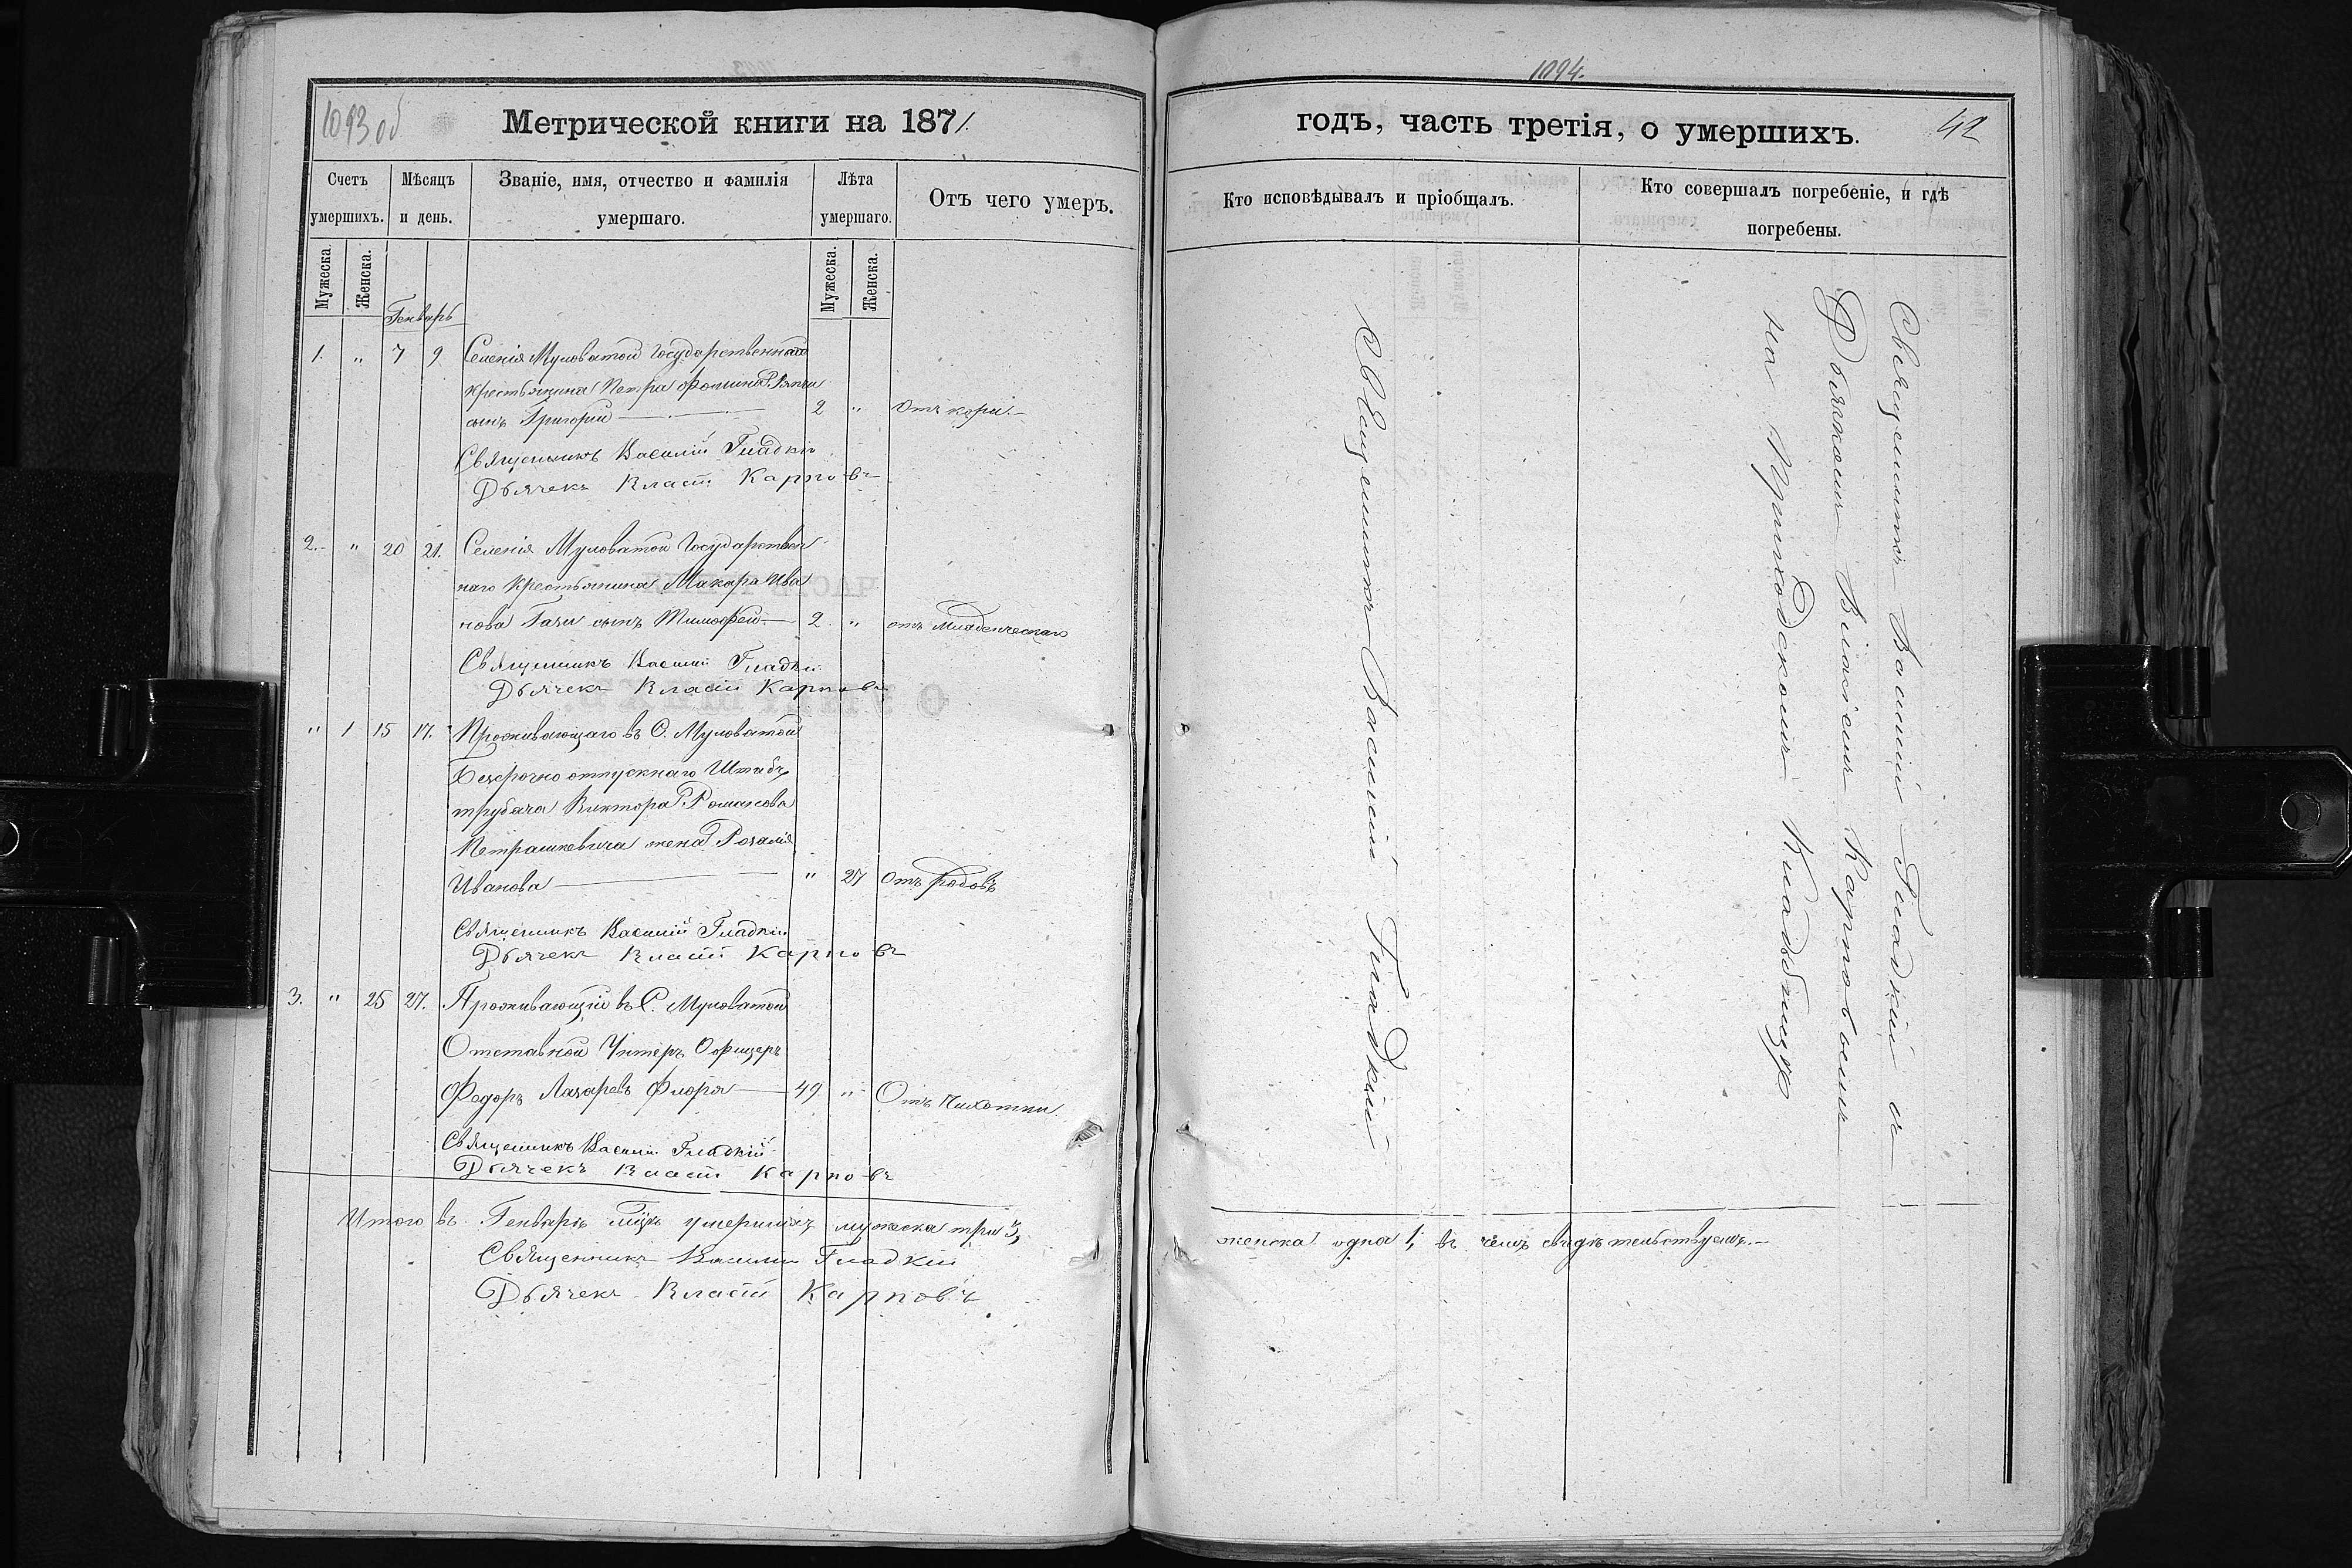 1093 об
Метрической книги на 1871.
Счетъ умершихъ.
Мѣсяцъ и день.
Званіе, имя, отчество и фамилія умершаго.
Лѣта умершаго.
Отъ чего умеръ.
Мужеска.
Женска.
Мужеска.
Женска.
Генварь
1. " 7 9. Селенія Муловатой Государственнаго
крестьянина Петра Фомина
сынъ Григорій 2 " Отъ кори.
Священникъ Василій Гладкій
Дьячекъ Власій Карповъ
2. " 20 21. Селенія Муловатой Государствен
наго крестьянина Макара Ива
нова Гази сынъ Тимофей 2. " отъ младенческаго
Священникъ Василій Гладкій
Дьячекъ Власій Карповъ
" 1 15 17. Проживающаго въ С. Муловатой
Безсрочно отпускнаго Штабъ
трубача Виктора Романова
Петрашкевича жена Розалія
Иванова " 27 Отъ родовъ
Священникъ Василій Гладкій
Дьячекъ Власій Карповъ
3. " 25 27. Проживающій въ С. Муловатой
Отставной Унтеръ Офицеръ
Федоръ Лазаревъ Флоря 49 " Отъ Чихотки.
Священникъ Василій Гладкій
Дьячекъ Власій Карповъ
Итого въ Генварѣ м͠цѣ умершихъ мужеска три 3,
Священникъ Василій Гладкій
Дьячекъ Власій Карповъ
1094.
годъ, часть третія, о умершихъ.
42
Кто исповѣдывалъ и пріобщалъ.
Кто совершалъ погребеніе, и гдѣ погребены.
Священникъ Василій Гладкій
Священникъ Василій Гладкій съ
Дьячкомъ Власіемъ Карповымъ
на Приходскомъ Кладбищѣ
женска одна 1, въ чемъ свидѣтельствуемъ.